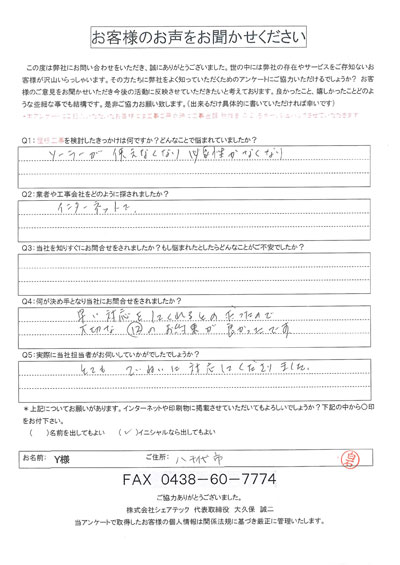 お客様のお声をお聞かせください
この度は弊社にお問い合わせをいただき、誠にありがとうございました。世の中には弊社の存在やサービスをご存知ないお
客様が沢山いらっしゃいます。その方たちに弊社をよく知っていただくためのアンケートにご協力いただけるでしょうか？ お客
様のご意見をお聞かせいただき今後の活動に反映させていただきたいと考えております。良かったこと、嬉しかったことどのよ
うな些細な事でも結構です。是非ご協力お願い致します。（出来るだけ具体的に書いていただければ幸いです）
Q1：屋根工事を検討したきっかけは何ですか？どんなことで悩まれていましたか？
ソーラーが 使えなくなり 必要性がなくなり
Q2：業者や工事会社をどのように探されましたか？
インターネットで、
Q3：当社を知りすぐにお問合せをされましたか？もし悩まれたとしたらどんなことがご不安でしたか？
Q4：何が決め手となり当社にお問合せをされましたか？
早い対応をしてくれるとの だったので
大切な の お約束が 良かったです
Q5：実際に当社担当者がお伺いしていかがでしたでしょうか？
とても ていねいに 対応してくださいました。
＊上記についてお願いがあります。インターネットや印刷物に掲載させていただいてもよろしいでしょうか？下記の中から〇印
をお付下さい。
（ ）名前を出してもよい （✓）イニシャルなら出してもよい
お名前： Y様 ご住所： 八千代市
FAX 0438-60-7774
ご協力ありがとうございました。
株式会社シェアテック 代表取締役 大久保 誠二
当アンケートで取得したお客様の個人情報は関係法規に基づき厳正に管理いたします。